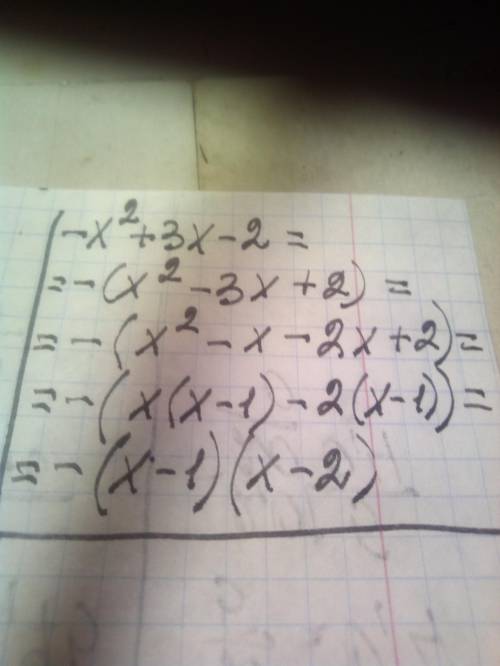 -x²+3x-2=
=-(x²-3x+2)=
=-(x²-x-2x+2)=
=-(x(x-1)-2(x-1))=
=-(x-1)(x-2)